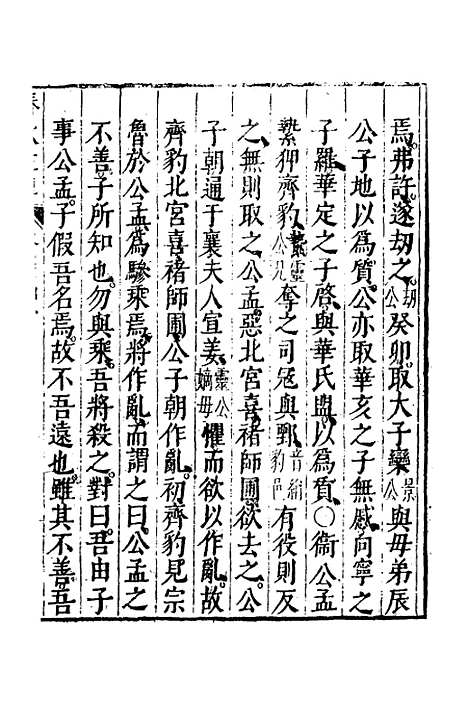 焉弗許遂劫之劫公癸卯取大子欒景公與母弟辰
公子地以爲質公亦取華亥之子無慼向寧之
子羅華定之子啓與華氏盟以爲質〇衞公孟
縶狎齊豹縶靈公兄奪之司寇與鄄音絹豹邑有役則反
之無則取之公孟惡北宮喜褚師圃欲去之公
子朝通于襄夫人宣姜靈公嫡母懼而欲以作亂故
齊豹北宮喜褚師圃公子朝作亂初齊豹見宗
魯於公孟爲驂乘焉將作亂而謂之曰公孟之
不善子所知也勿與乘吾將殺之對曰吾由子
事公孟子假吾名焉故不吾遠也雖其不善吾